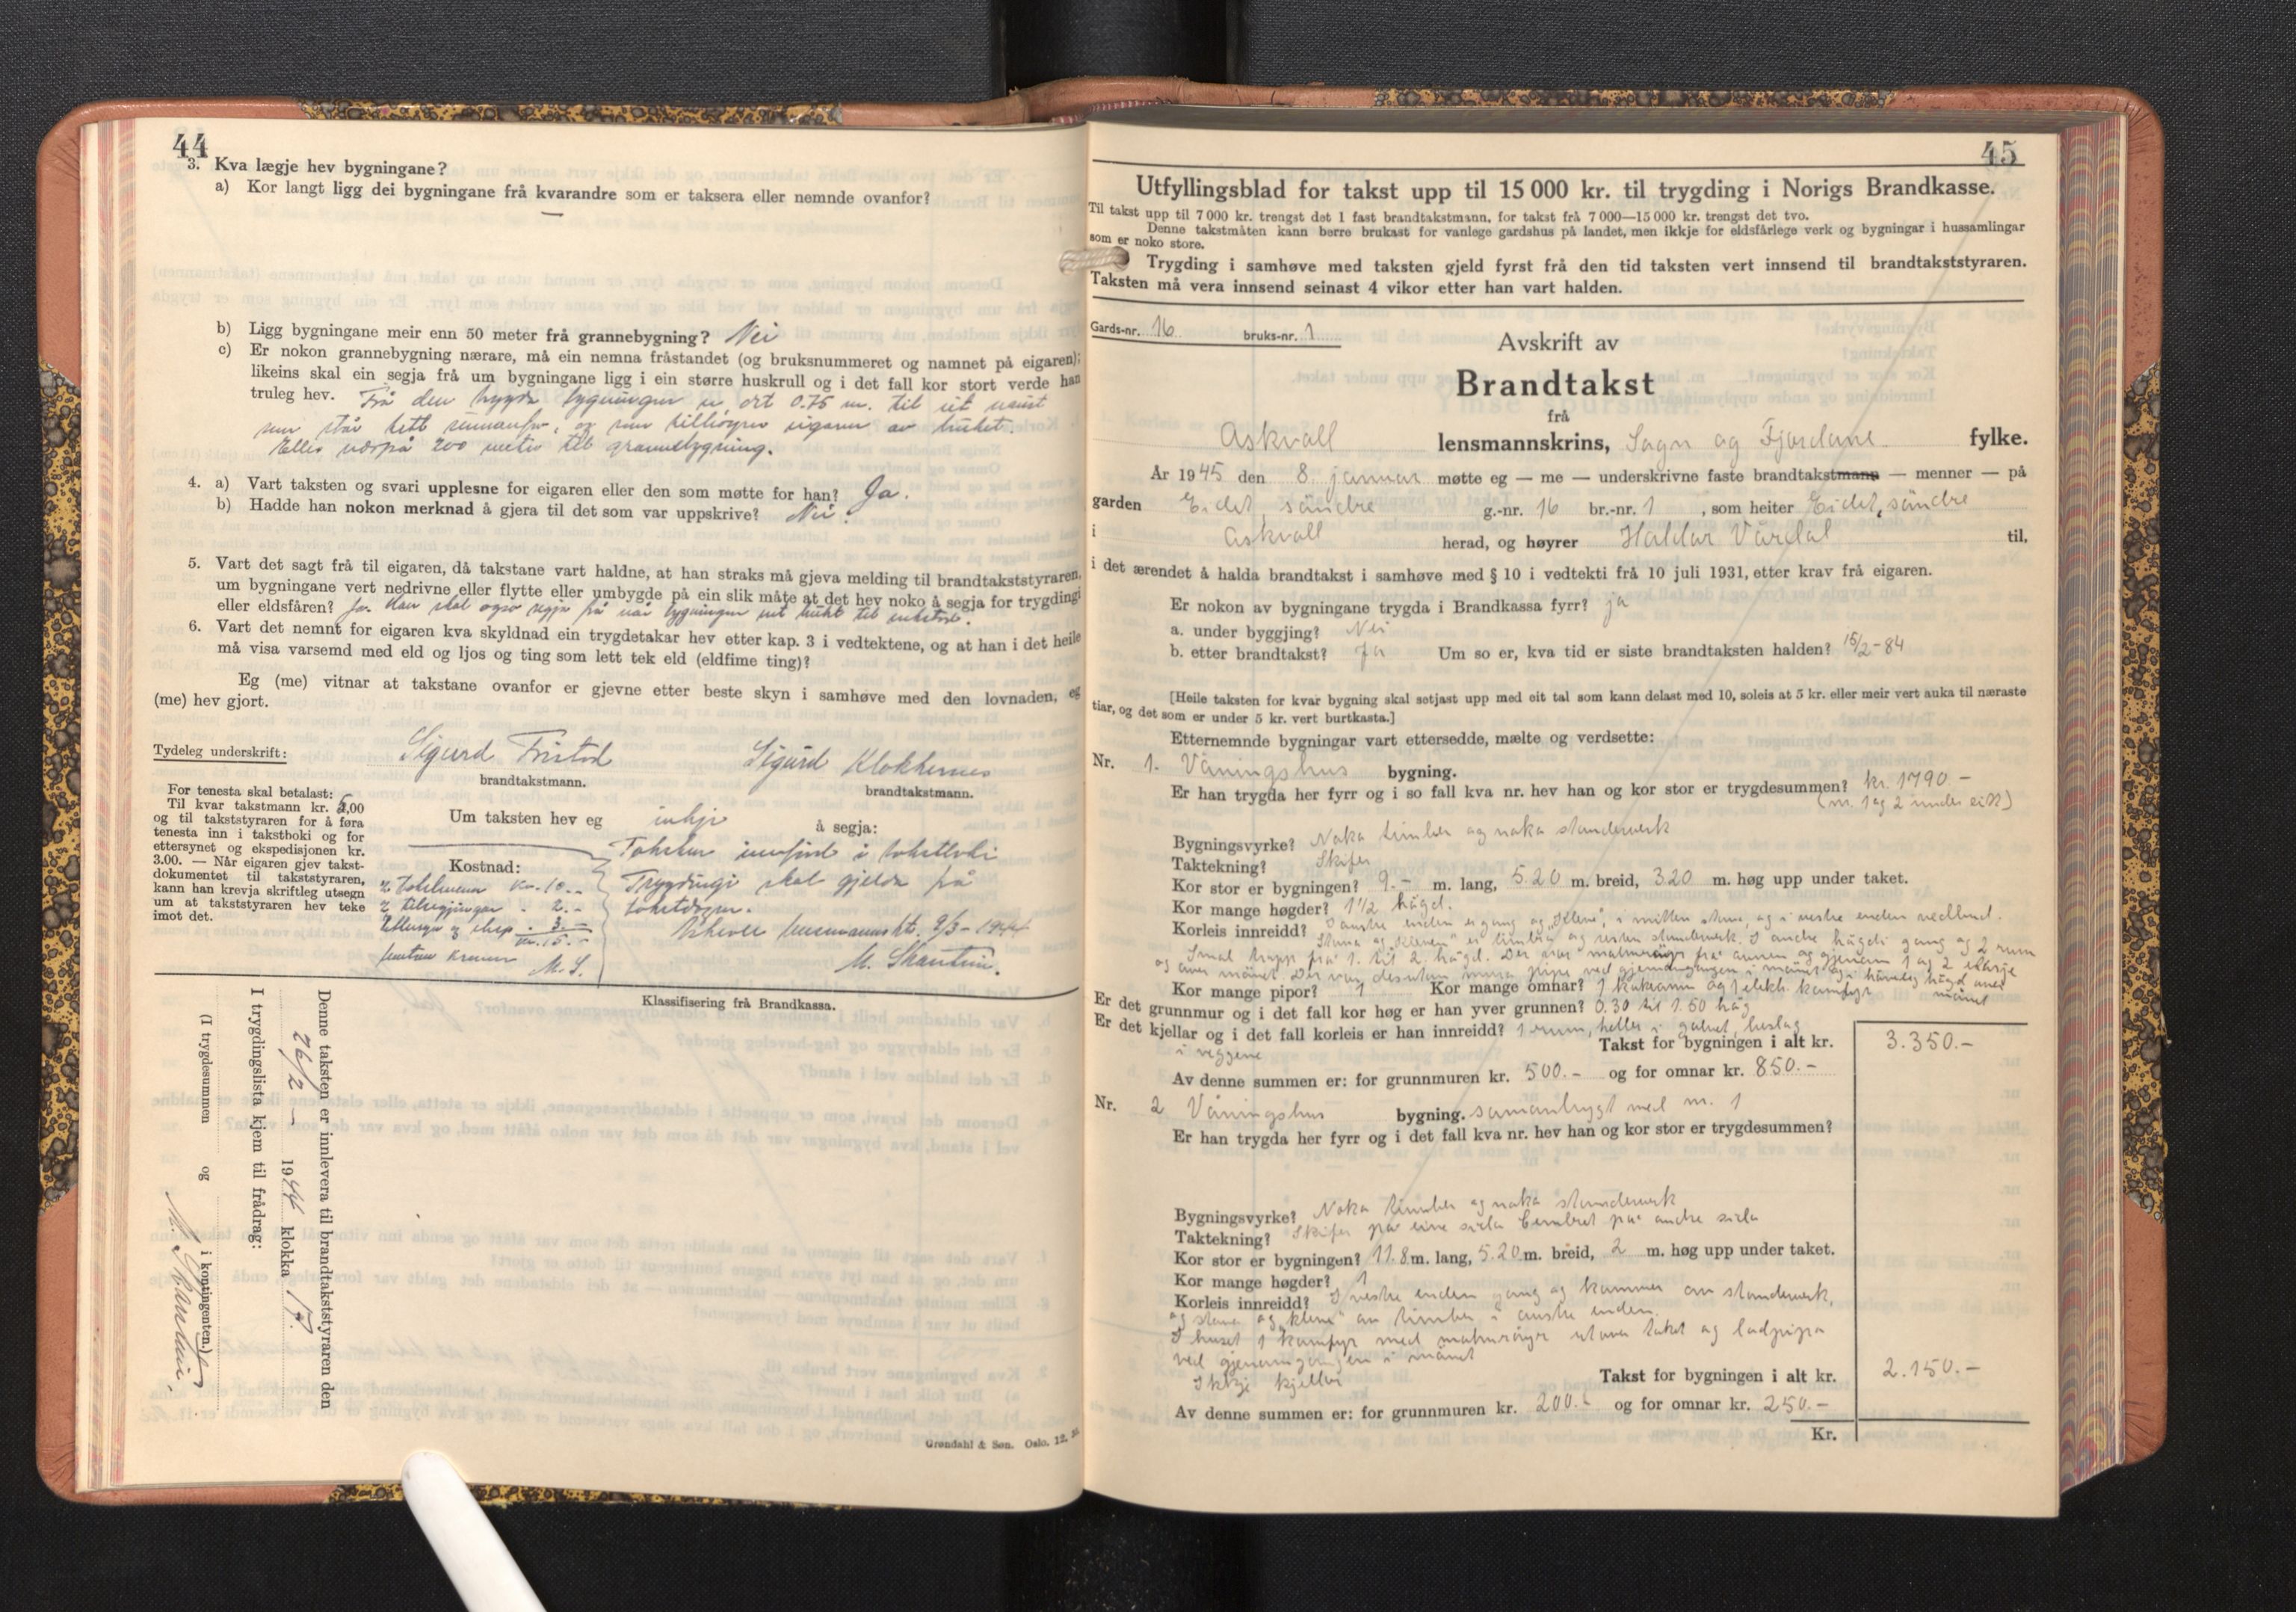 44
3. Kva lægje hev bygningane?
a) Kor langt ligg dei bygningane frå kvarandre som er taksera eller nemnde ovanfor?
—
b) Ligg bygningane meir enn 50 meter frå grannebygning? Nei
c) Er nokon grannebygning nærare, må ein nemna fråstandet (og bruksnummeret og namnet på eigaren);
likeins skal ein segja frå um bygningane ligg i ein større huskrull og i det fall kor stort verde han
truleg hev. Frå den bygningen er det 0.75 m. til eit naust
som står tett sunnanfor, og som tilhøyrer eigaren av bruket.
Elles 200 meter til grannebygning.
4. a) Vart taksten og svari upplesne for eigaren eller den som møtte for han? Ja.
b) Hadde han nokon merknad å gjera til det som var uppskrive? Nei.
5. Vart det sagt frå til eigaren, då takstane vart haldne, at han straks må gjeva melding til brandtakststyraren,
um bygningane vert nedrivne eller flytte eller umbygde på ein slik måte at det hev noko å segja for trygdingi
eller eldsfåren? Ja. Han skal også segja frå når bygningen vert brukt til
6. Vart det nemnt for eigaren kva skyldnad ein trygdetakar hev etter kap. 3 i vedtektene, og at han i det heile
må visa varsemd med eld og ljos og ting som lett tek eld (eldfime ting)?
Eg (me) vitnar at takstane ovanfor er gjevne etter beste skyn i samhøve med den lovnaden, eg
(me) hev gjort.
Tydeleg underskrift: Sigurd Sigurd Klokkernes
brandtakstmann. brandtakstmann.
For tenesta skal betalast:
Til kvar takstmann kr. 5,00
og til takststyraren for å føra
tenesta inn i takstboki og for
ettersynet og ekspedisjonen kr.
3.00. — Når eigaren gjev takst-
dokumentet til takststyraren,
kann han krevja skriftleg utsegn
um at takststyraren hev teke
imot det.
Um taksten hev eg inkje å segja:
Kostnad:
2 takstmenn kr. 10.-
2 - 2.-
Ettersyn og eksp. - 3.-
kr. 15.-
femten kroner
M. S.
Taksten innførd i takstboki
Trygdingi skal gjelda frå
takstdagen.
Askvoll lensmannskt. 2/3-1944
Klassifisering frå Brandkassa.
Denne taksten er innlevera til brandtakststyraren den
26/2 - 1944 klokka 17.
I trygdingslista kjem til frådrag:
(I trygdesummen og i kontingenten.)
Grøndahl & Søn. Oslo. 12.
45
Utfyllingsblad for takst upp til 15 000 kr. til trygding i Norigs Brandkasse.
Til takst upp til 7 000 kr. trengst det 1 fast brandtakstmann, for takst frå 7 000—15 000 kr. trengst det tvo.
Denne takstmåten kann berre brukast for vanlege gardshus på landet, men ikkje for eldsfårlege verk og bygningar i hussamlingar
som er noko store.
Trygding i samhøve med taksten gjeld fyrst frå den tid taksten vert innsend til brandtakststyraren.
Taksten må vera innsend seinast 4 vikor etter han vart halden.
Gards-nr. 16 bruks-nr. 1
Avskrift av
Brandtakst
frå
Askvoll lensmannskrins, Sogn og Fjordane fylke.
År 1945 den 8. januar møtte eg — me — underskrivne faste brandtakstmann — menner — på
garden Eidet, söndre g.-nr. 16 br.-nr. 1, som heiter Eidet, söndre
i Askvoll herad, og høyrer Haldor Vårdal til,
i det ærendet å halda brandtakst i samhøve med § 10 i vedtekti frå 10 juli 1931, etter krav frå eigaren.
Er nokon av bygningane trygda i Brandkassa fyrr? ja
a. under byggjing? Nei
b. etter brandtakst? ja Um so er, kva tid er siste brandtaksten halden? 15/2-84
[Heile taksten for kvar bygning skal setjast upp med eit tal som kann delast med 10, soleis at 5 kr. eller meir vert auka til næraste
tiar, og det som er under 5 kr. vert burtkasta.]
Etternemnde bygningar vart ettersedde, mælte og verdsette:
Nr. 1. Våningshus bygning.
Er han trygda her fyrr og i so fall kva nr. hev han og kor stor er trygdesummen? kr. 1790-
(nr. 1 og 2 under eitt)
Bygningsvyrke? Noko timber og noko standerverk
Taktekning? Skifer
Kor stor er bygningen? 9.- m. lang, 5.20 m. breid, 3.20 m. høg upp under taket.
Kor mange høgder? 1 1/2 högd.
Korleis innreidd? I austre enden er gang og "Klene", i mitten stova, og i vestre enden vedbud.
Stova og "klenen" er timbra og resten standerverk. I andre högdi gang og 2 rum
Smal trapp frå 1. til 2 högd. Der går malmröyr frå omnen og gjenom 1 og 2 etasje
og over mönet. Der var desutan mura pipe ved gjenomgangen i mönet og i höveleg högd over
mönet
Kor mange pipor? 1 Kor mange omnar? 1 kakeomn og 1 elekt. komfyr
Er det grunnmur og i det fall kor høg er han yver grunnen? 0.30 til 1.50 hög
Er det kjellar og i det fall korleis er han innreidd? 1 rum, heller i golvet, beslag
i veggene
Takst for bygningen i alt kr. 3.350.-
Av denne summen er: for grunnmuren kr. 500.- og for omnar kr. 850.-
Nr. 2 Våningshus bygning. samanbygt med nr. 1
Er han trygda her fyrr og i det fall kva nr. hev han og kor stor er trygdesummen?
Bygningsvyrke? Noko timber og noko standerverk
Taktekning? Skifer på eine sida på andre sida
Kor stor er bygningen? 11.8 m. lang, 5.20 m. breid, 2 m. høg upp under taket.
Kor mange høgder? 1
Korleis innreidd? I vestre enden gang og kammer av standerverk,
og stova og "klene" av timber i austre enden.
I huset 1 komfyr med malmröyr utover taket og ladpipa
ved gjenomgangen i mönet
Ikkje kjeller
Takst for bygningen i alt kr. 2.150.-
Av denne summen er: for grunnmuren kr. 200.- og for omnar kr. 250.-
Kr.